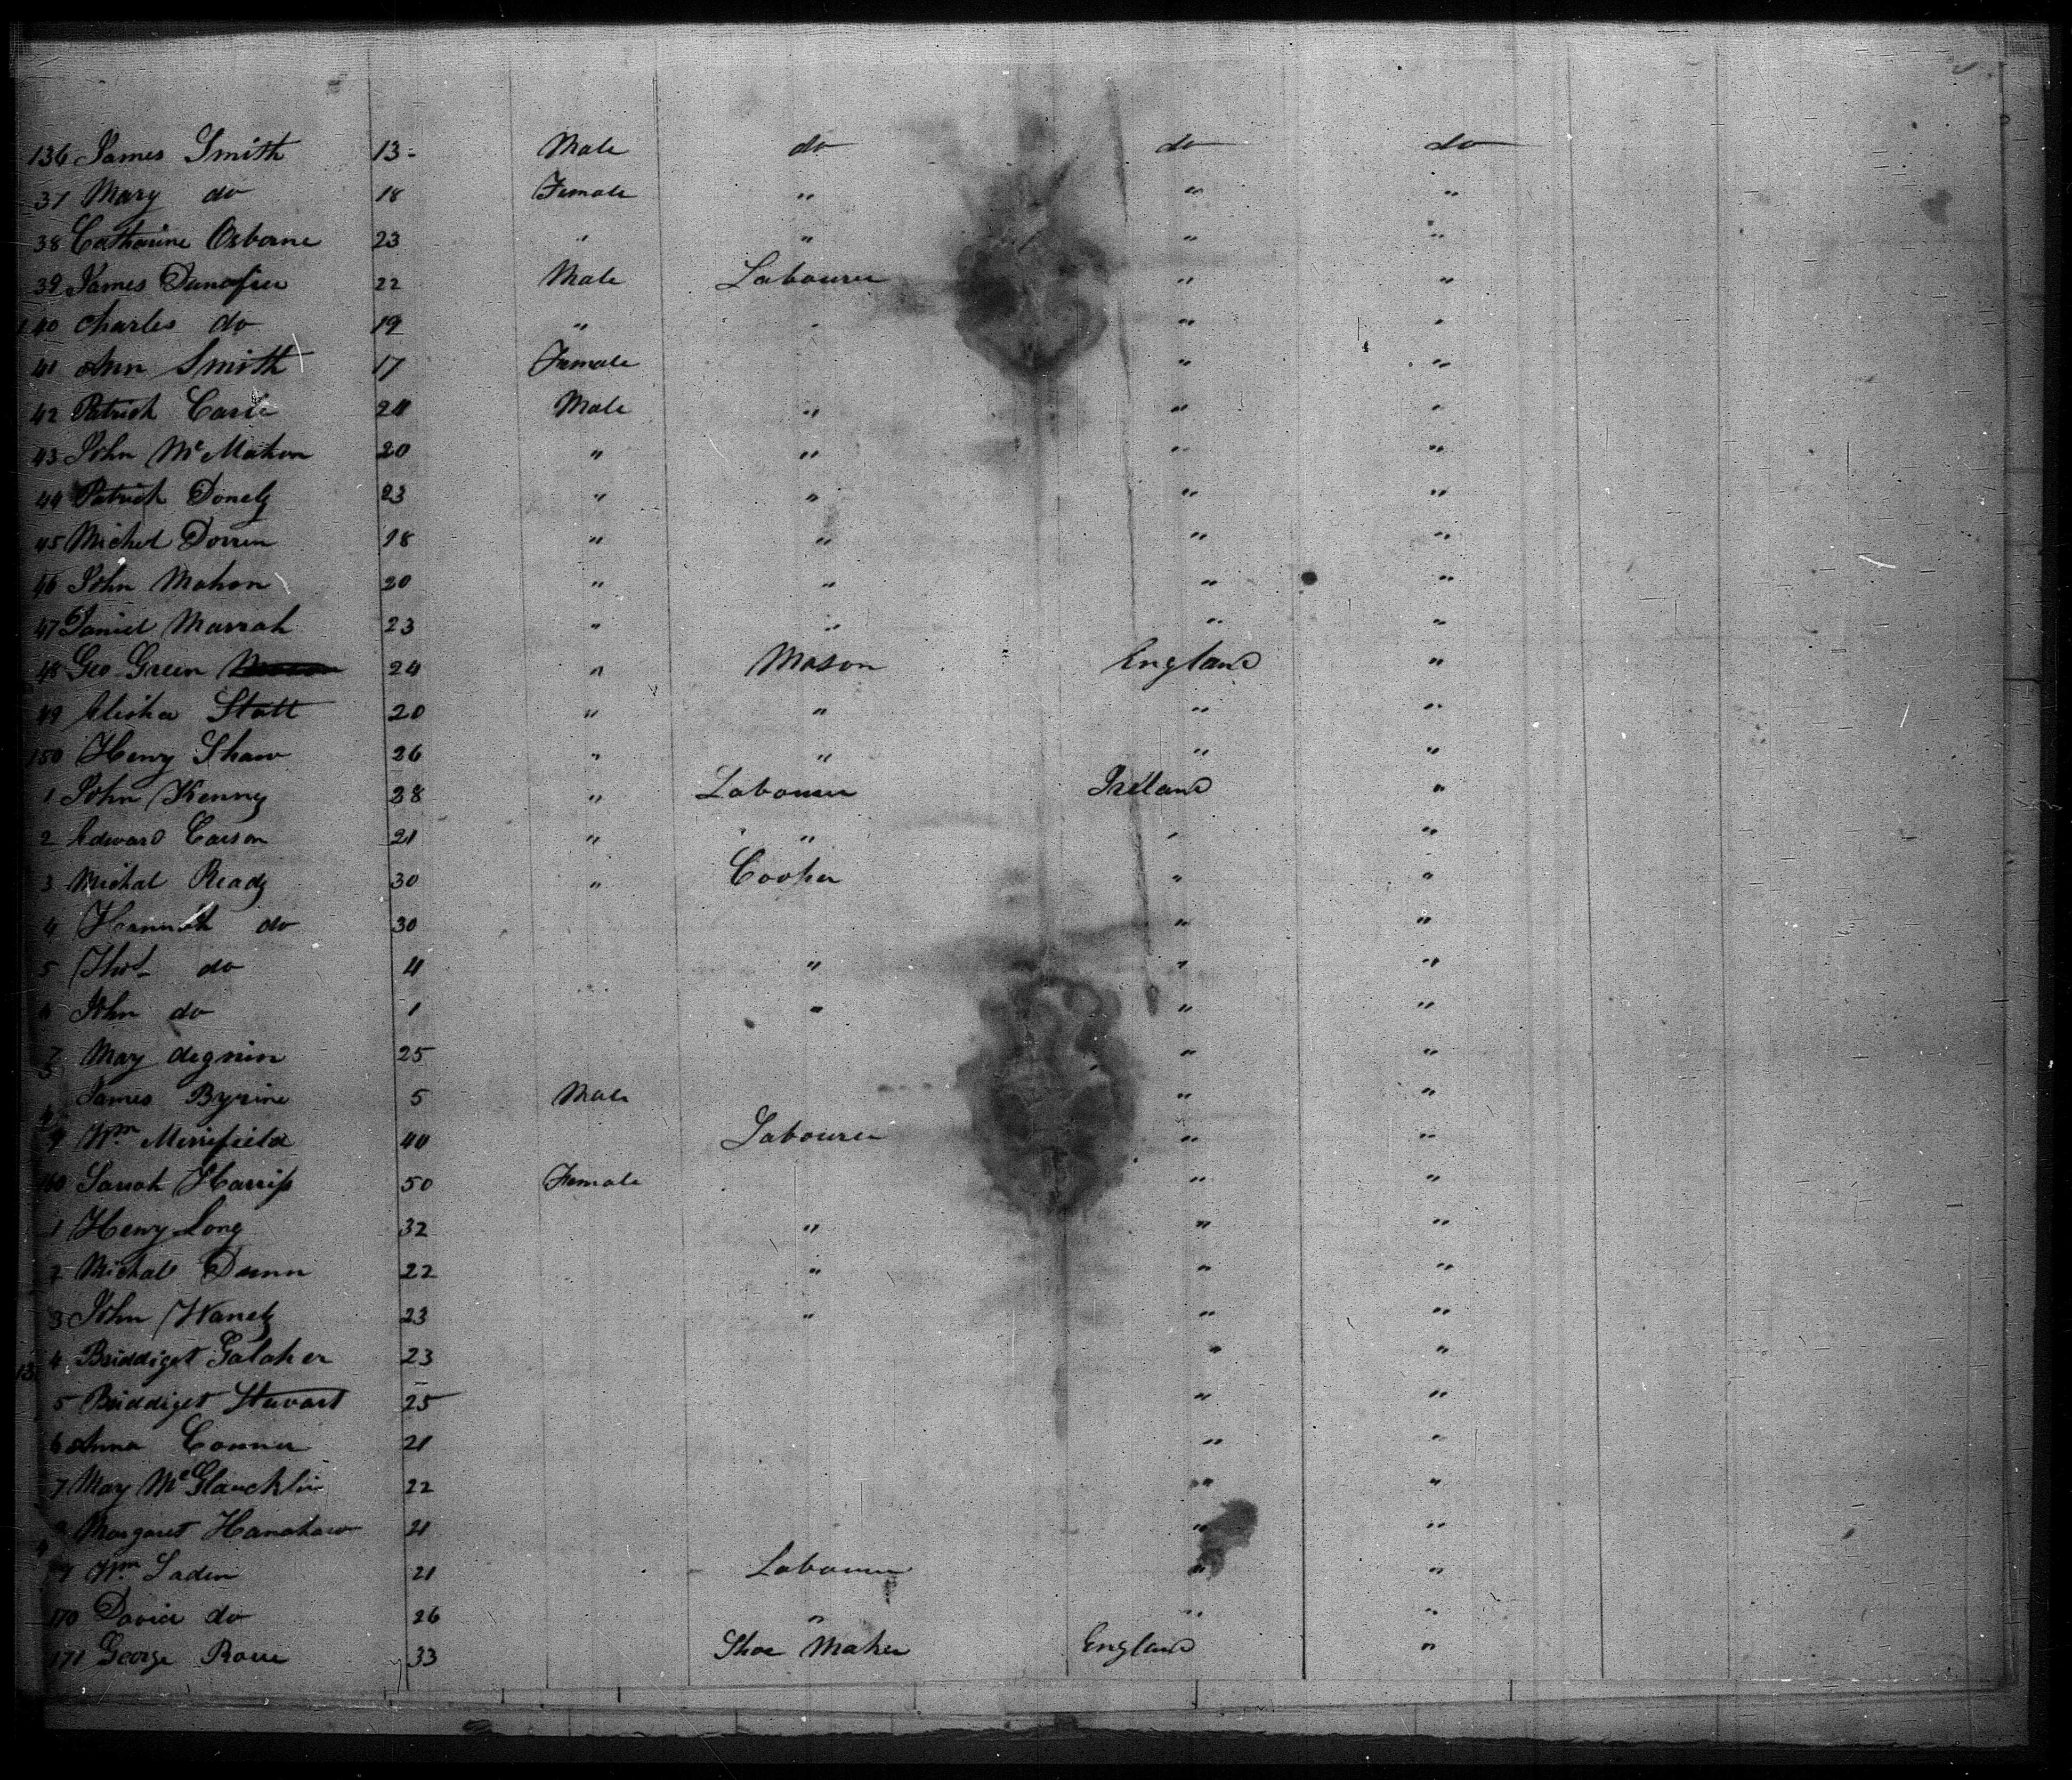 136 James Smith 13 - Male do do do
37 Mary do 18 Female " " "
38 Catharine Osborne 23 " " " "
39 James 22 Male Labourer " "
140 Charles do 19 " " " "
41 Ann Smith 17 Female " "
42 Patrick 24 Male " " "
43 John Mc Mahon 20 " " " "
44 Patrick Donely 23 " " " "
45 Michel Dorren 18 " " " "
46 John Mahon 20 " " " "
47 Daniel Marrah 23 " " " "
48 Geo Green 24 " Mason England "
49 Elisha Stott 20 " " " "
150 Henry Shaw 26 " " " "
1 John Kenny 28 " Labourer Ireland "
2 Edward Carson 21 " " " "
3 Michal Ready 30 " Cooper " "
4 Hannah do 30 " "
5 Thos do 4 " " "
6 John do 1 " " "
7 May degnin 25 " "
James Byrine 5 Male " "
9 Wm Merrifield 40 Labourer " "
160 Sarrah Harriss 50 Female " "
1 Henry Long 32 " " "
2 Michal Dunn 22 " " "
3 John 23 " " "
4 Briddiget Galaher 23 " "
5 Briddiget Stewart 25 " "
6 Anna Conner 21 " "
7 May Mc Glaucklin 22 " "
Margaret Hanahaw 21 " "
9 Wm Laden 21 Labourer " "
170 David do 26 " " "
171 George 33 Shoe Maker England "